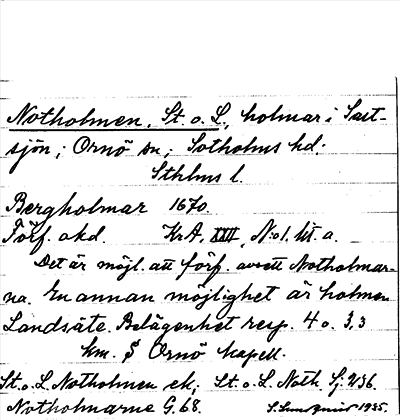 Notholmen, St. o. L., holmar i Salt-
sjön; Ornö sn; Sotholms hd;
Sthlms l.
Bergholmar 1670.
Förf. okd. Kr A, XXII, N:o 1. lit. a.
Det är möjl. att förf. avsett Notholmar-
na. En annan möjlighet är holmen
Landsäte. Belägenhet resp. 4 o. 3,3
km. S Ornö kapell.
St. o. L. Notholmen ek; St. o. L. Noth. Sj. 236.
Notholmarne G. 68. 1935.